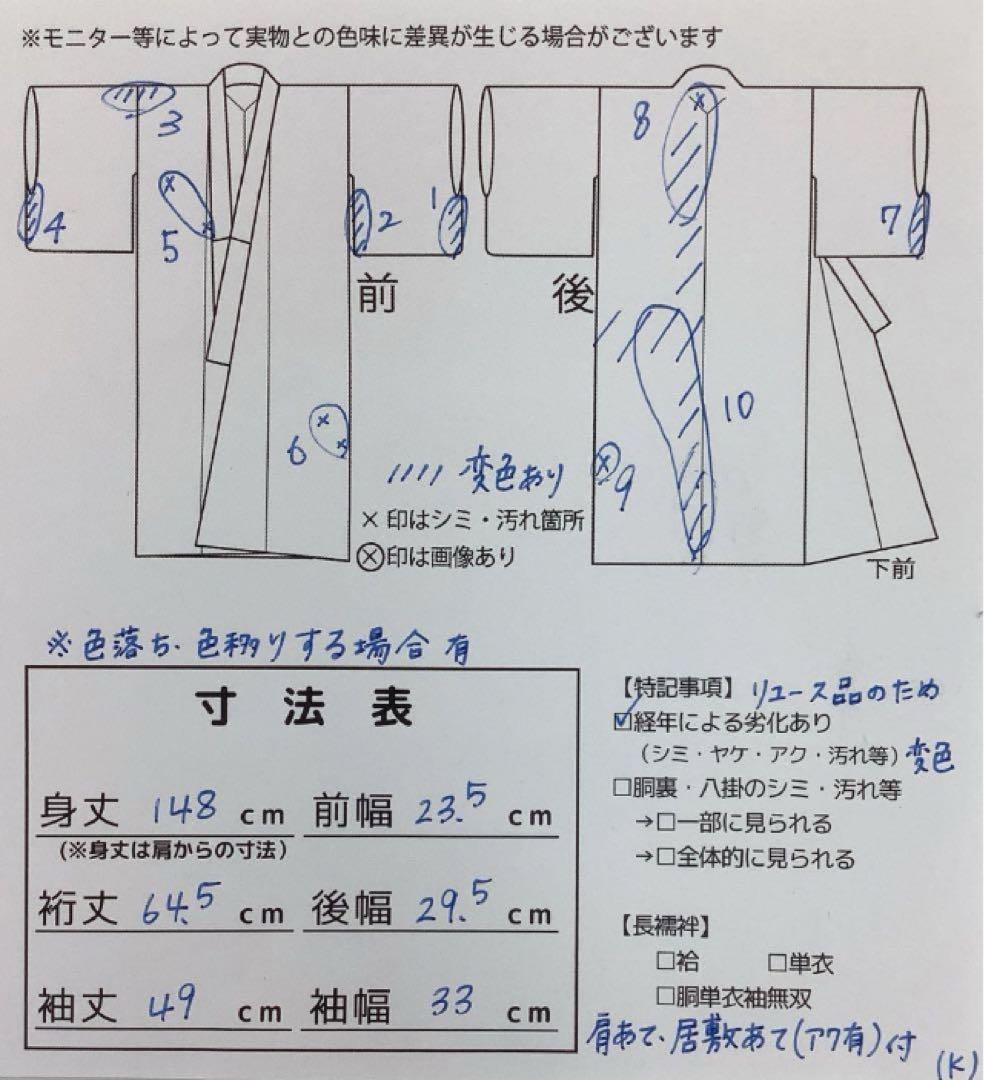 ※モニター等によって実物との色味に差異が生じる場合がございます
3
4
5
2
1
前
6
8
後
7
10
9
下前
//// 変色あり
× 印はシミ・汚れ箇所
⊗印は画像あり
※色落ち、色移りする場合有
寸法表
身丈 148 cm 前幅 23.5 cm
(※身丈は肩からの寸法)
裄丈 64.5 cm 後幅 29.5 cm
袖丈 49 cm 袖幅 33 cm
【特記事項】 リユース品のため
☑経年による劣化あり
(シミ・ヤケ・アク・汚れ等) 変色
□胴裏・八掛のシミ・汚れ等
→□一部に見られる
→□全体的に見られる
【長襦袢】
□袷 □単衣
□胴単衣袖無双
肩あて、居敷あて(アク有)付
(K)